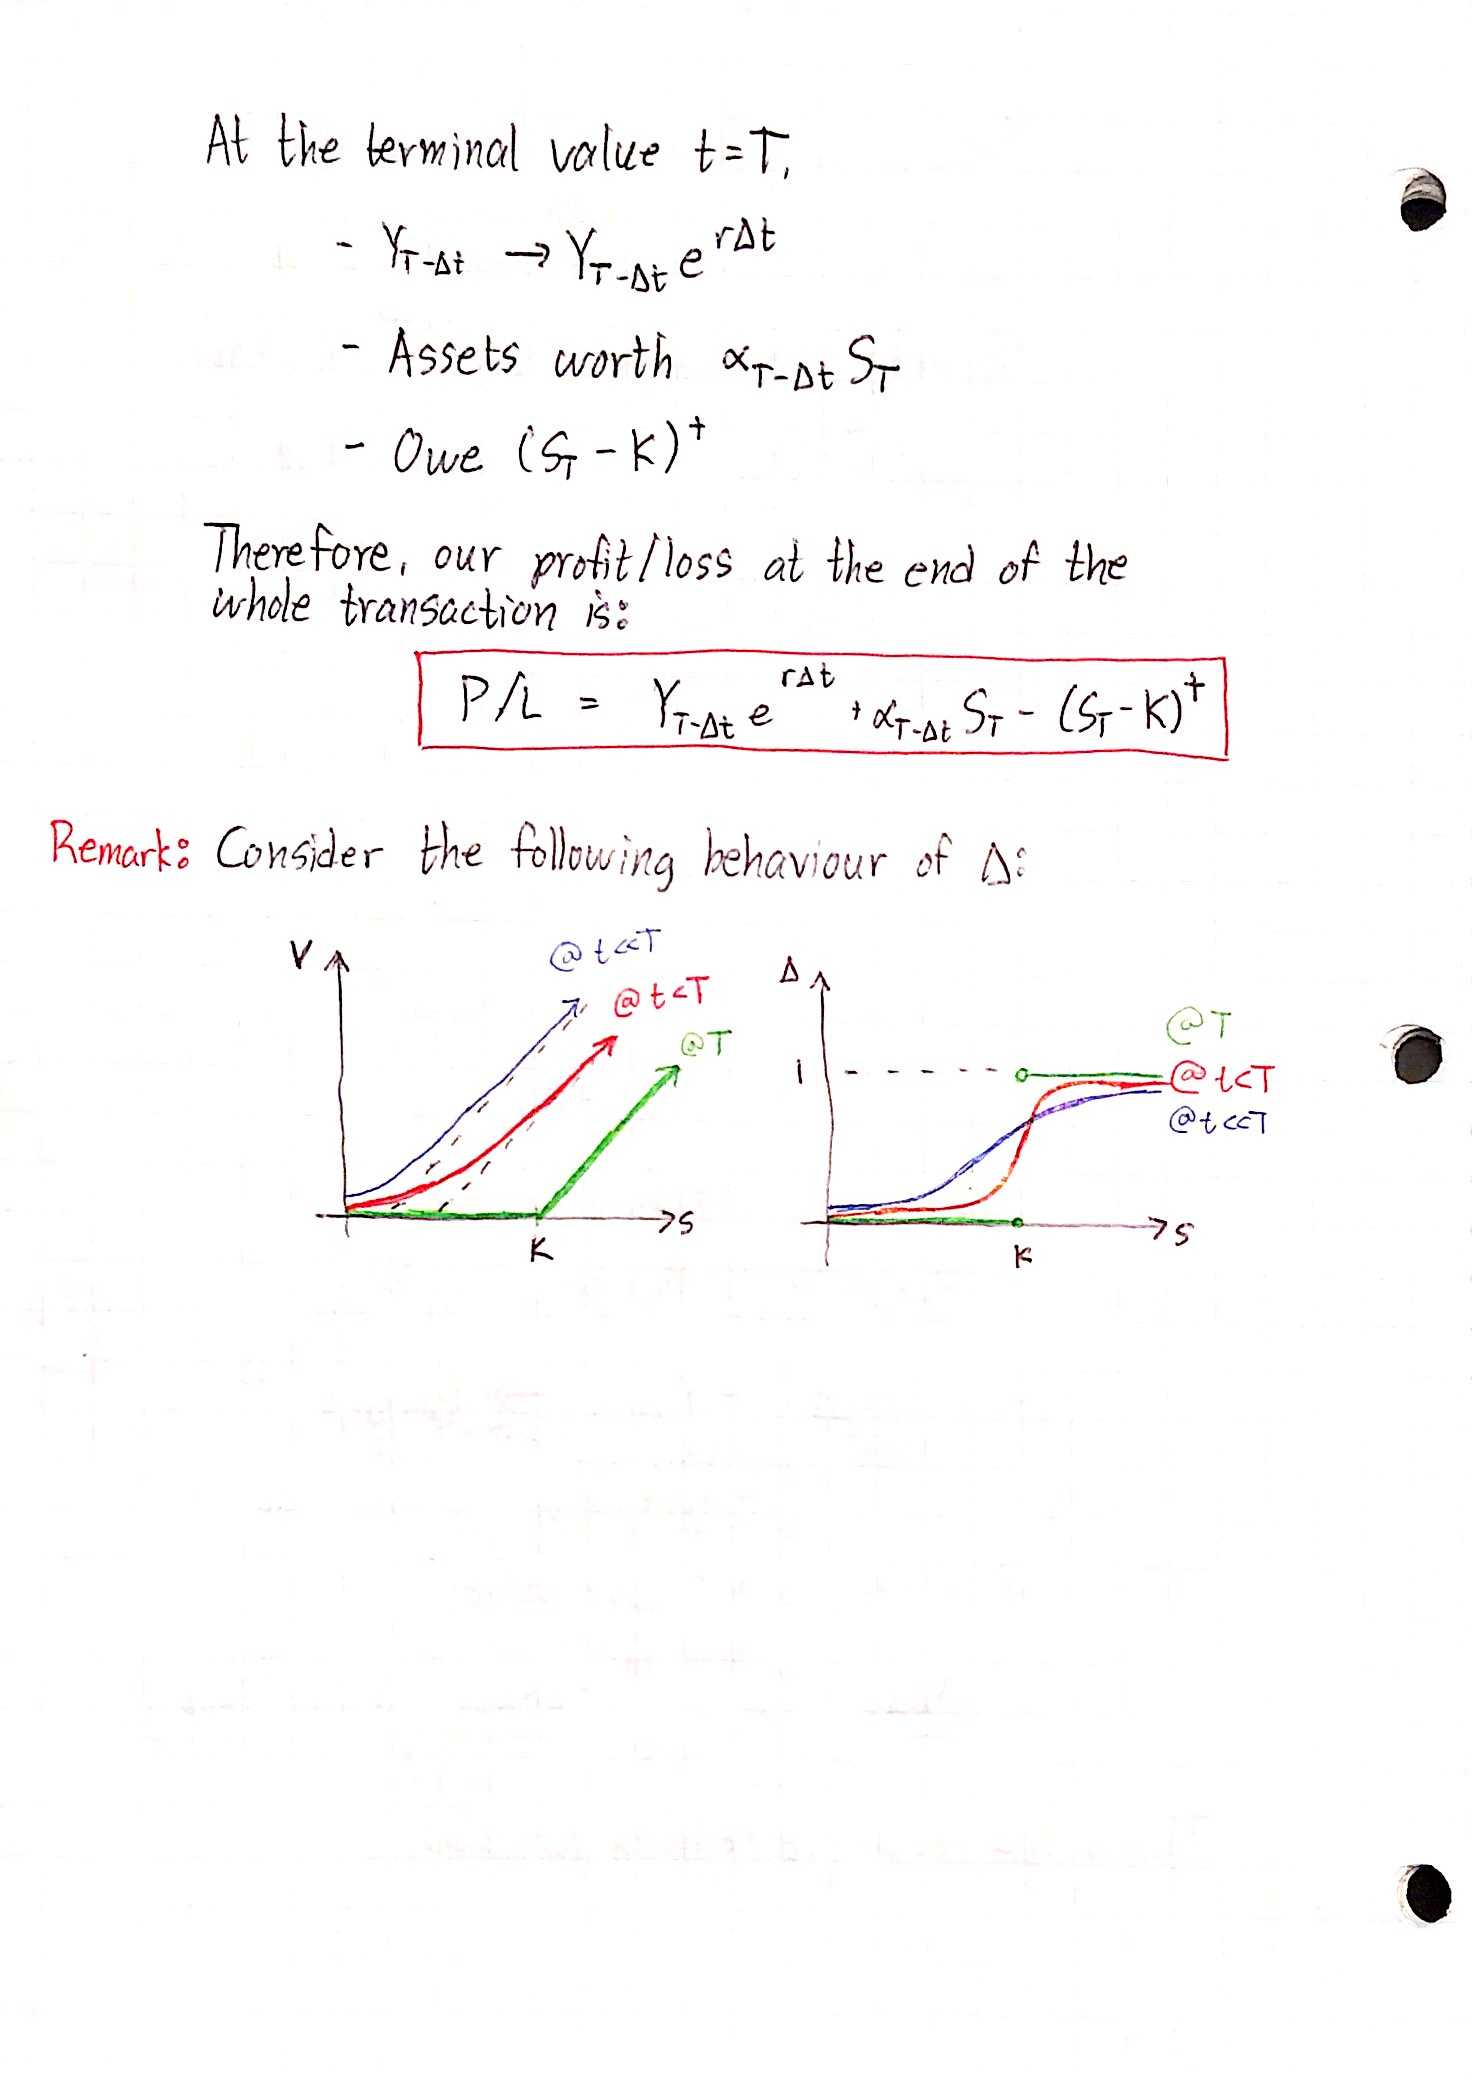 At the terminal value t=T,
- Y_{T-Δt} → Y_{T-Δt} e^{rΔt}
- Assets worth α_{T-Δt} S_T
- Owe (S_T - K)^+
Therefore, our profit/loss at the end of the
whole transaction is:
P/L = Y_{T-Δt} e^{rΔt} + α_{T-Δt} S_T - (S_T - K)^+
Remark: Consider the following behaviour of Δ:
V
@ t<<T
@ t<T
@ T
S
K
Δ
1
@ T
@ t<T
@ t<<T
S
K